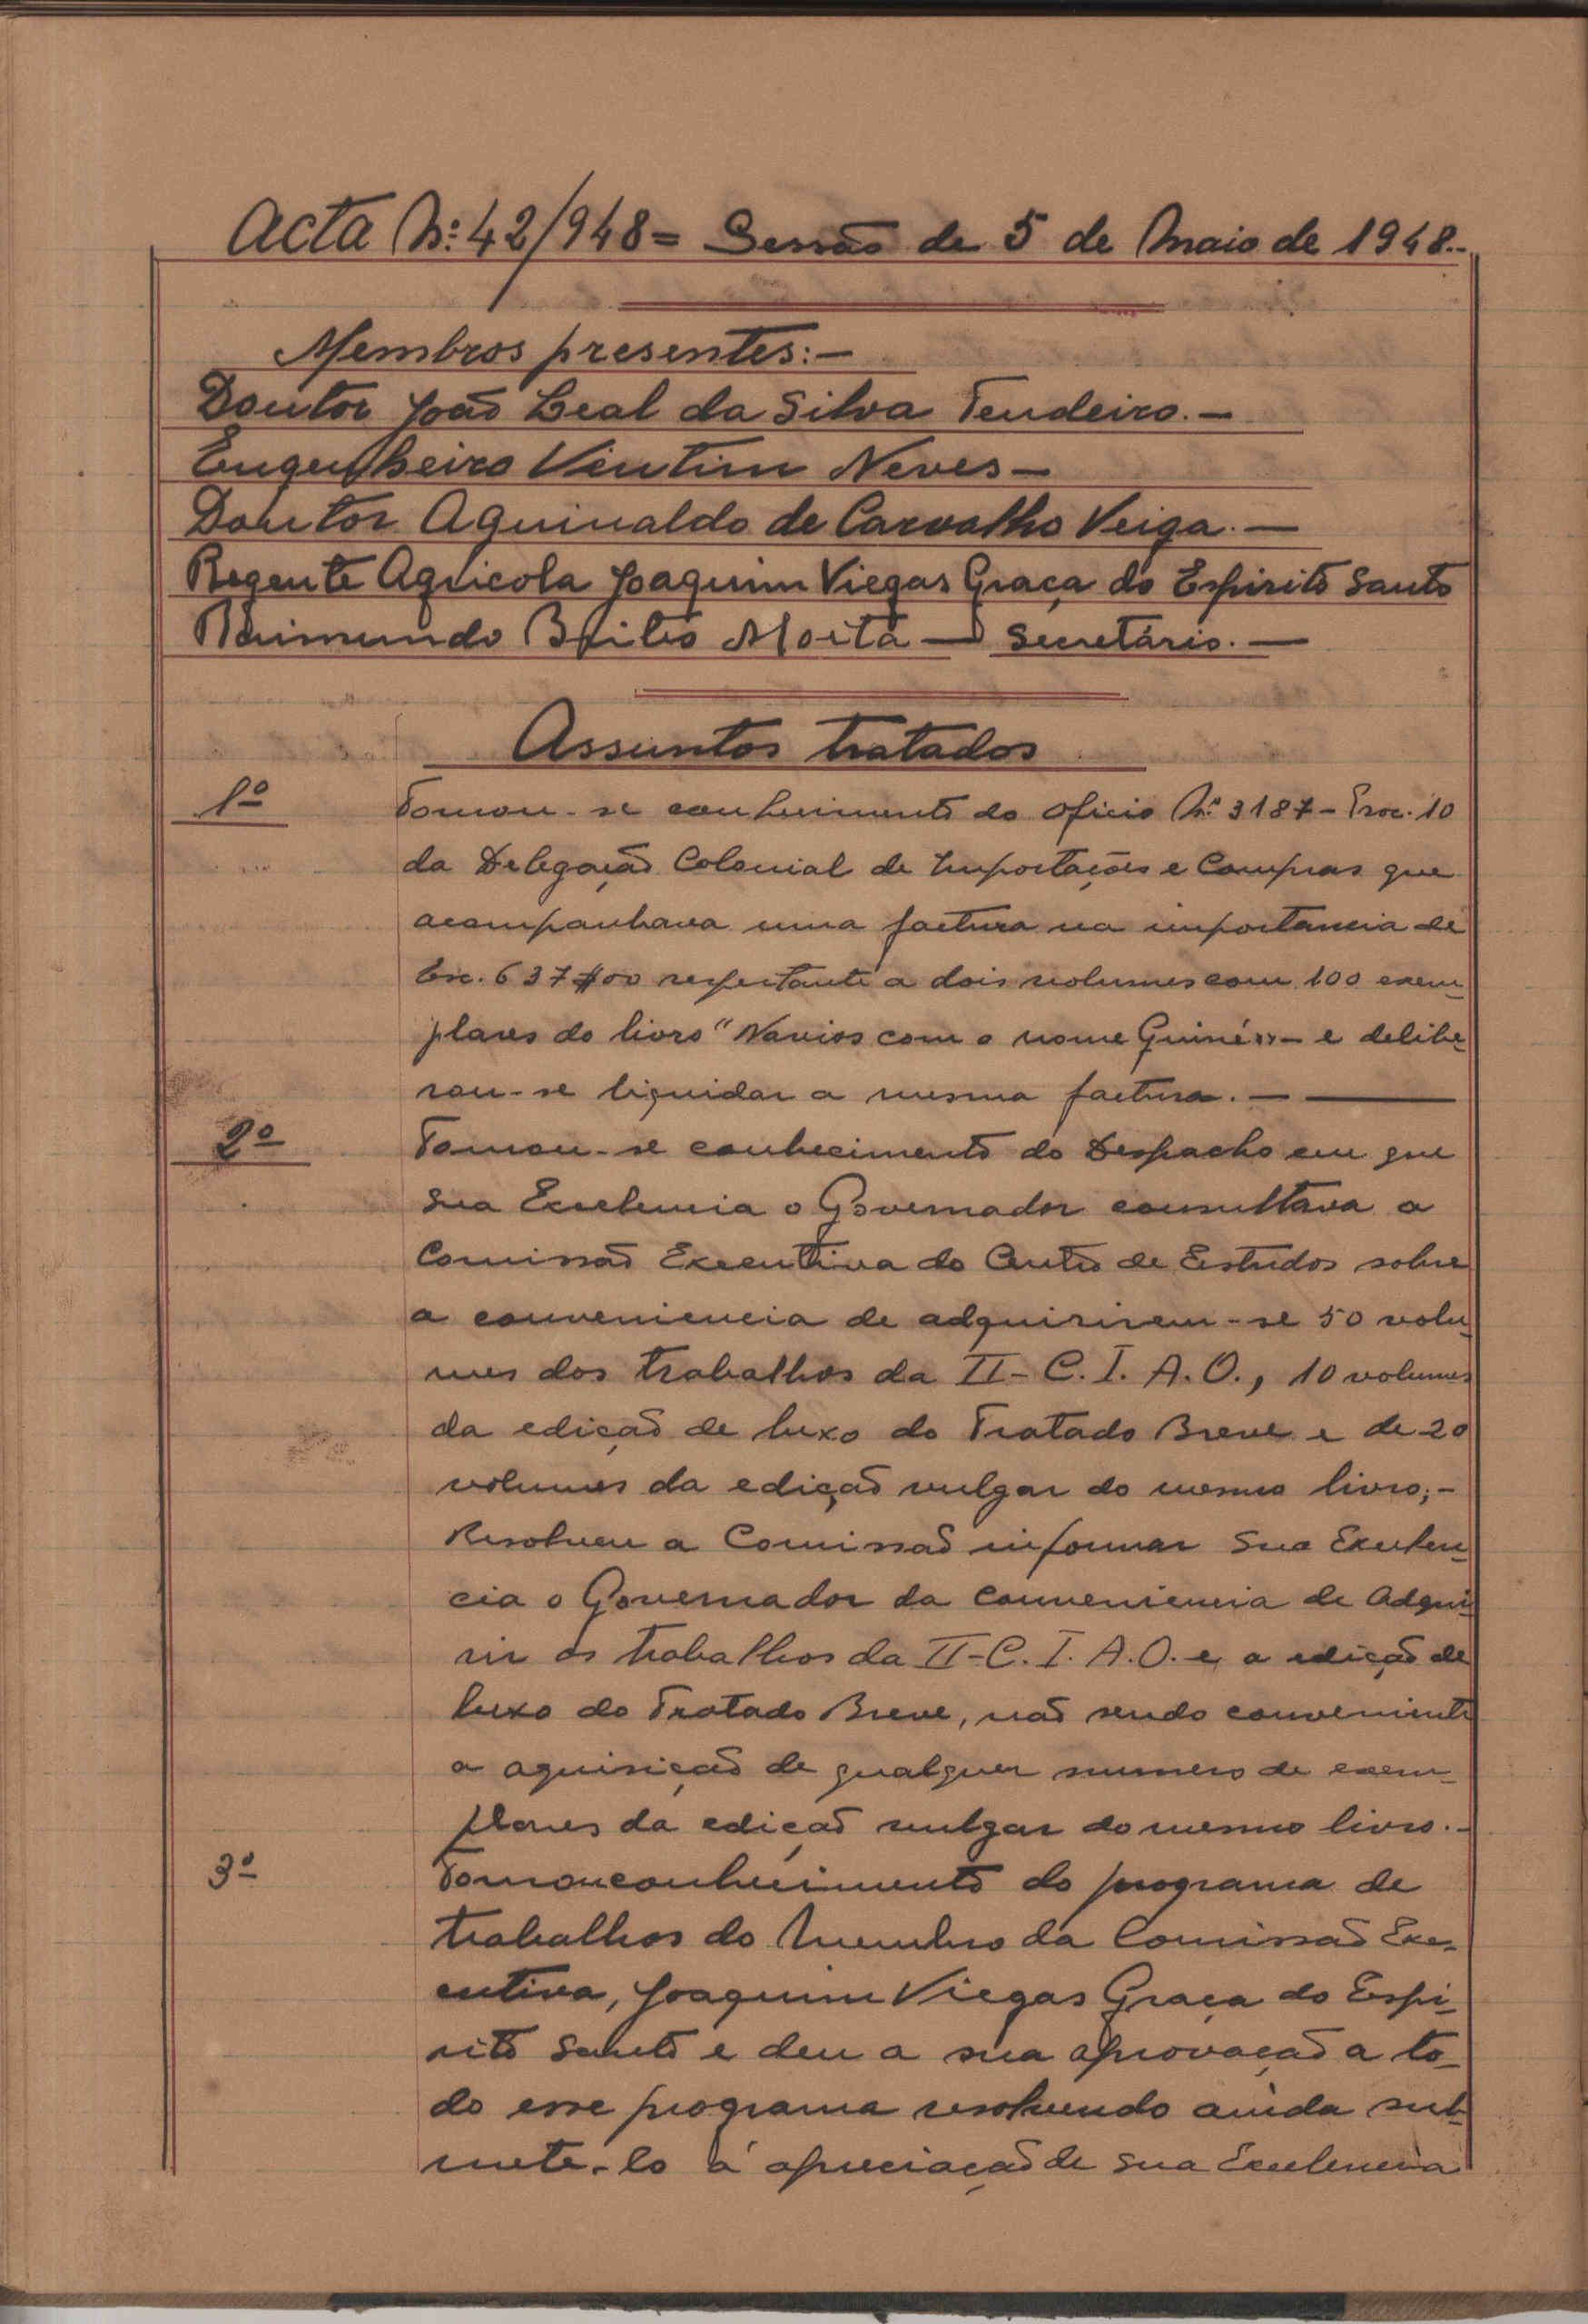 Acta Nº 42/948 = Sessão de 5 de Maio de 1948.-
Membros presentes:-
Doutor João Leal da Silva Tendeiro.-
Engenheiro Vintim Neves-
Doutor Aguinaldo de Carvalho Veiga.-
Regente Agricola Joaquim Viegas Graça do Espirito Santo
Raimundo Brito Moita - Secretário.-
Assuntos tratados
1º
Tomou-se conhecimento do oficio Nº 3187 - Proc. 10
da Delegação Colonial de Importações e Compras que
acompanhava uma factura na importancia de
Esc. 637$00 respeitante a dois volumes com 100 exem-
plares do livro "Navios com o nome Guiné" - e delibe-
rou-se liquidar a mesma factura.-
2º
Tomou-se conhecimento do Despacho em que
Sua Excelencia o Governador consultava a
Comissão Executiva do Centro de Estudos sobre
a conveniencia de adquirirem-se 50 volu-
mes dos trabalhos da II-C.I.A.O., 10 volumes
da edição de luxo do Tratado Breve e de 20
volumes da edição vulgar do mesmo livro;-
Resolveu a Comissão informar Sua Excelen-
cia o Governador da conveniencia de Adqui-
rir os trabalhos da II-C.I.A.O. e a edição de
luxo do Tratado Breve, não sendo conveniente
a aquisição de qualquer numero de exem-
plares da edição vulgar do mesmo livro.-
3º
Tomou conhecimento do programa de
trabalhos do Membro da Comissão Exe-
cutiva, Joaquim Viegas Graça do Espi-
rito Santo e deu a sua aprovação a to-
do esse programa resolvendo ainda sub-
mete-lo á apreciação de Sua Excelencia